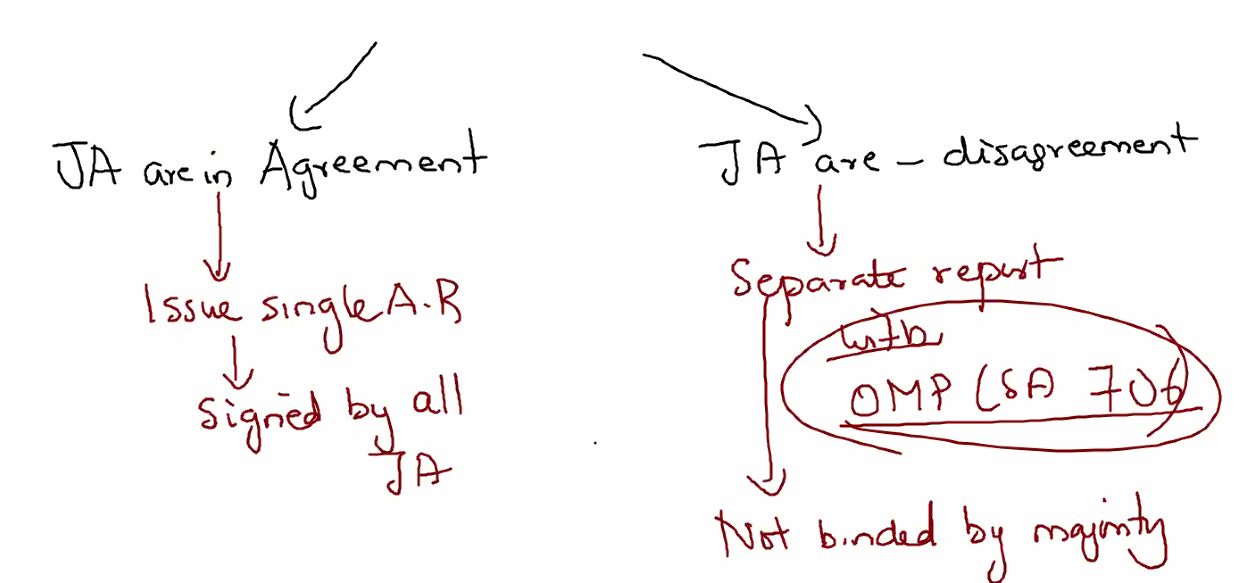 JA are in Agreement
Issue single A.R
Signed by all
JA
JA are - disagreement
Separate report
with
OMP (SA 706)
Not binded by majority